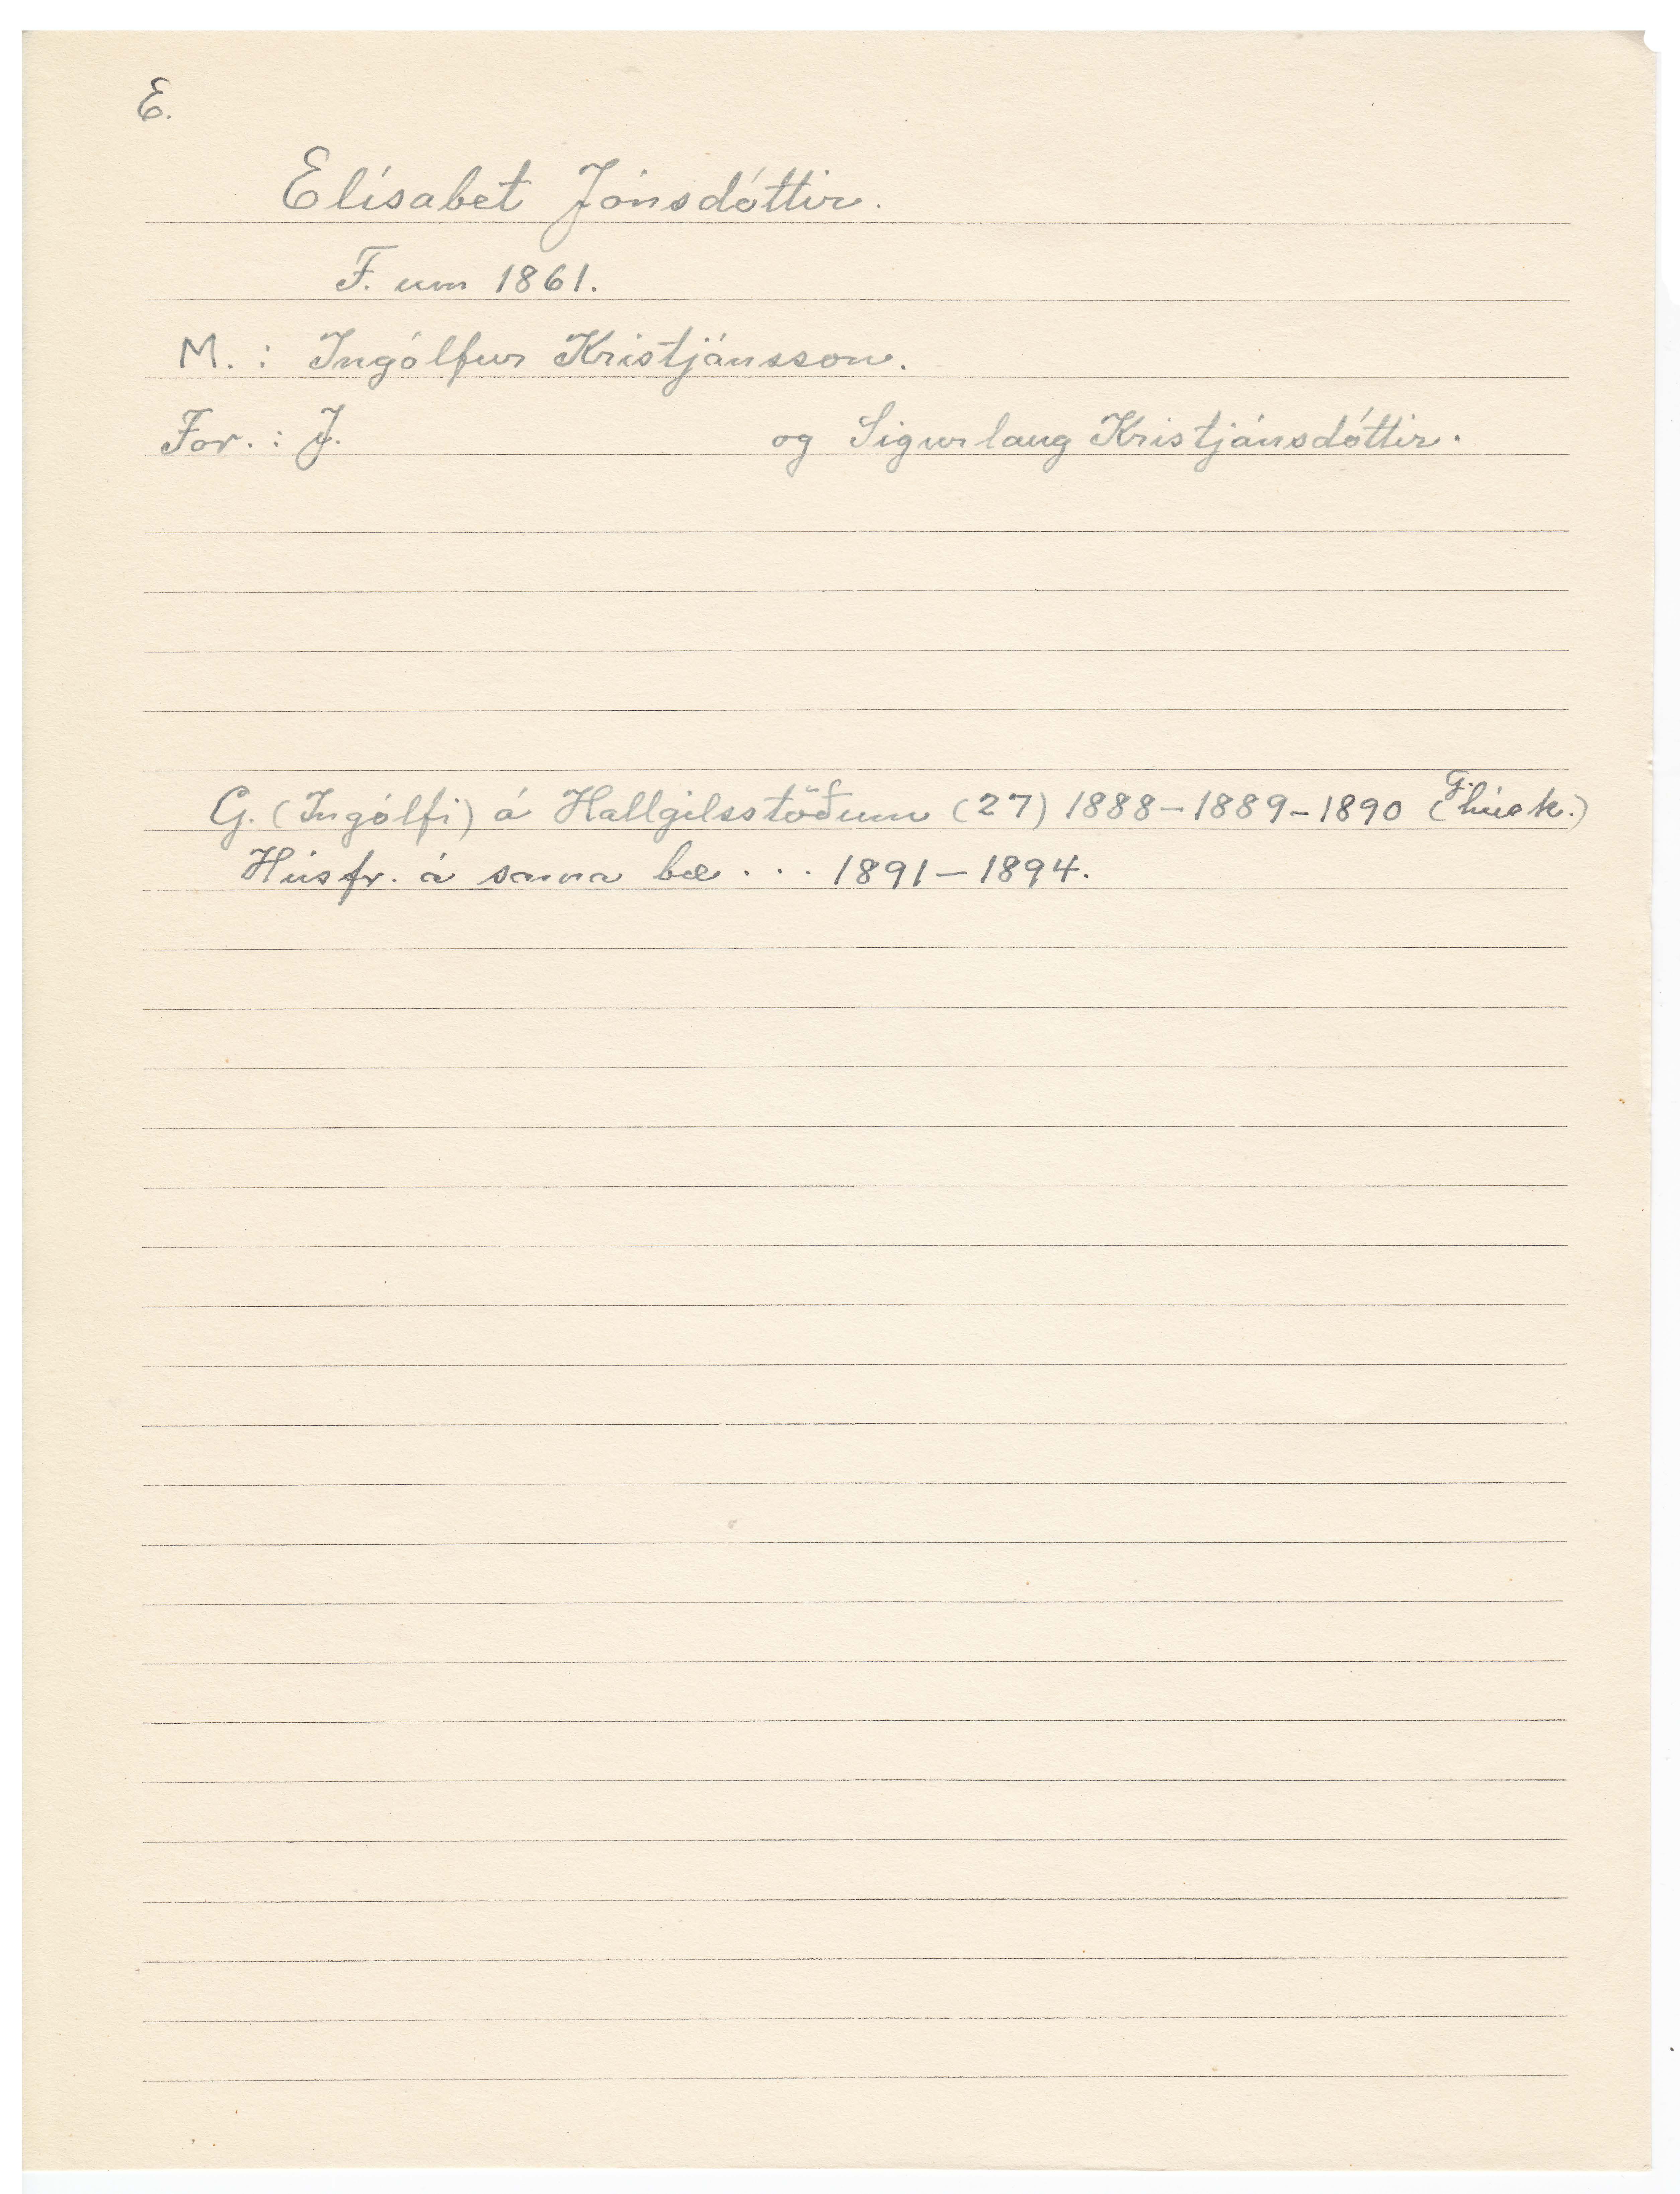 E.
Elísabet Jónsdóttir.
F. um 1861.
M. : Ingólfur Kristjánsson.
For. : J. og Sigurlaug Kristjánsdóttir.
G. (Ingólfi) á Hallgilsstöðum (27) 1888–1889–1890 (G. húsk.)
Húsfr. á sama bæ . . . 1891–1894.